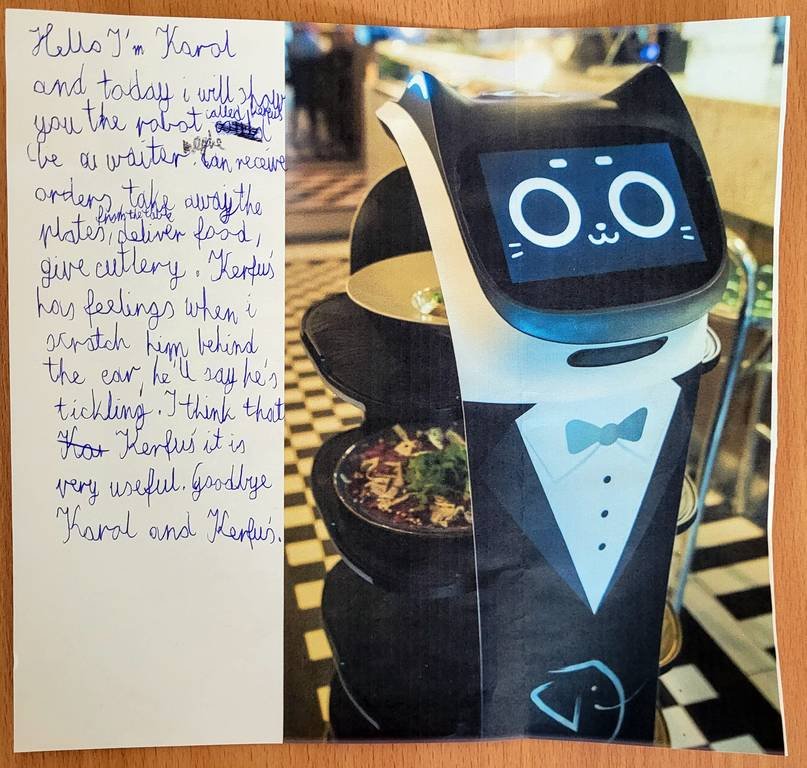 Hello I'm Karol
and today i will show
you the robot called Kerfuś
be a waiter. Can receive
orders, take away the
plates, from the table deliver food,
give cutlery. Kerfuś
has feelings when i
scratch him behind
the ear, he'll say he's
tickling. I think that
Kerfuś it is
very useful. Goodbye
Karol and Kerfuś.